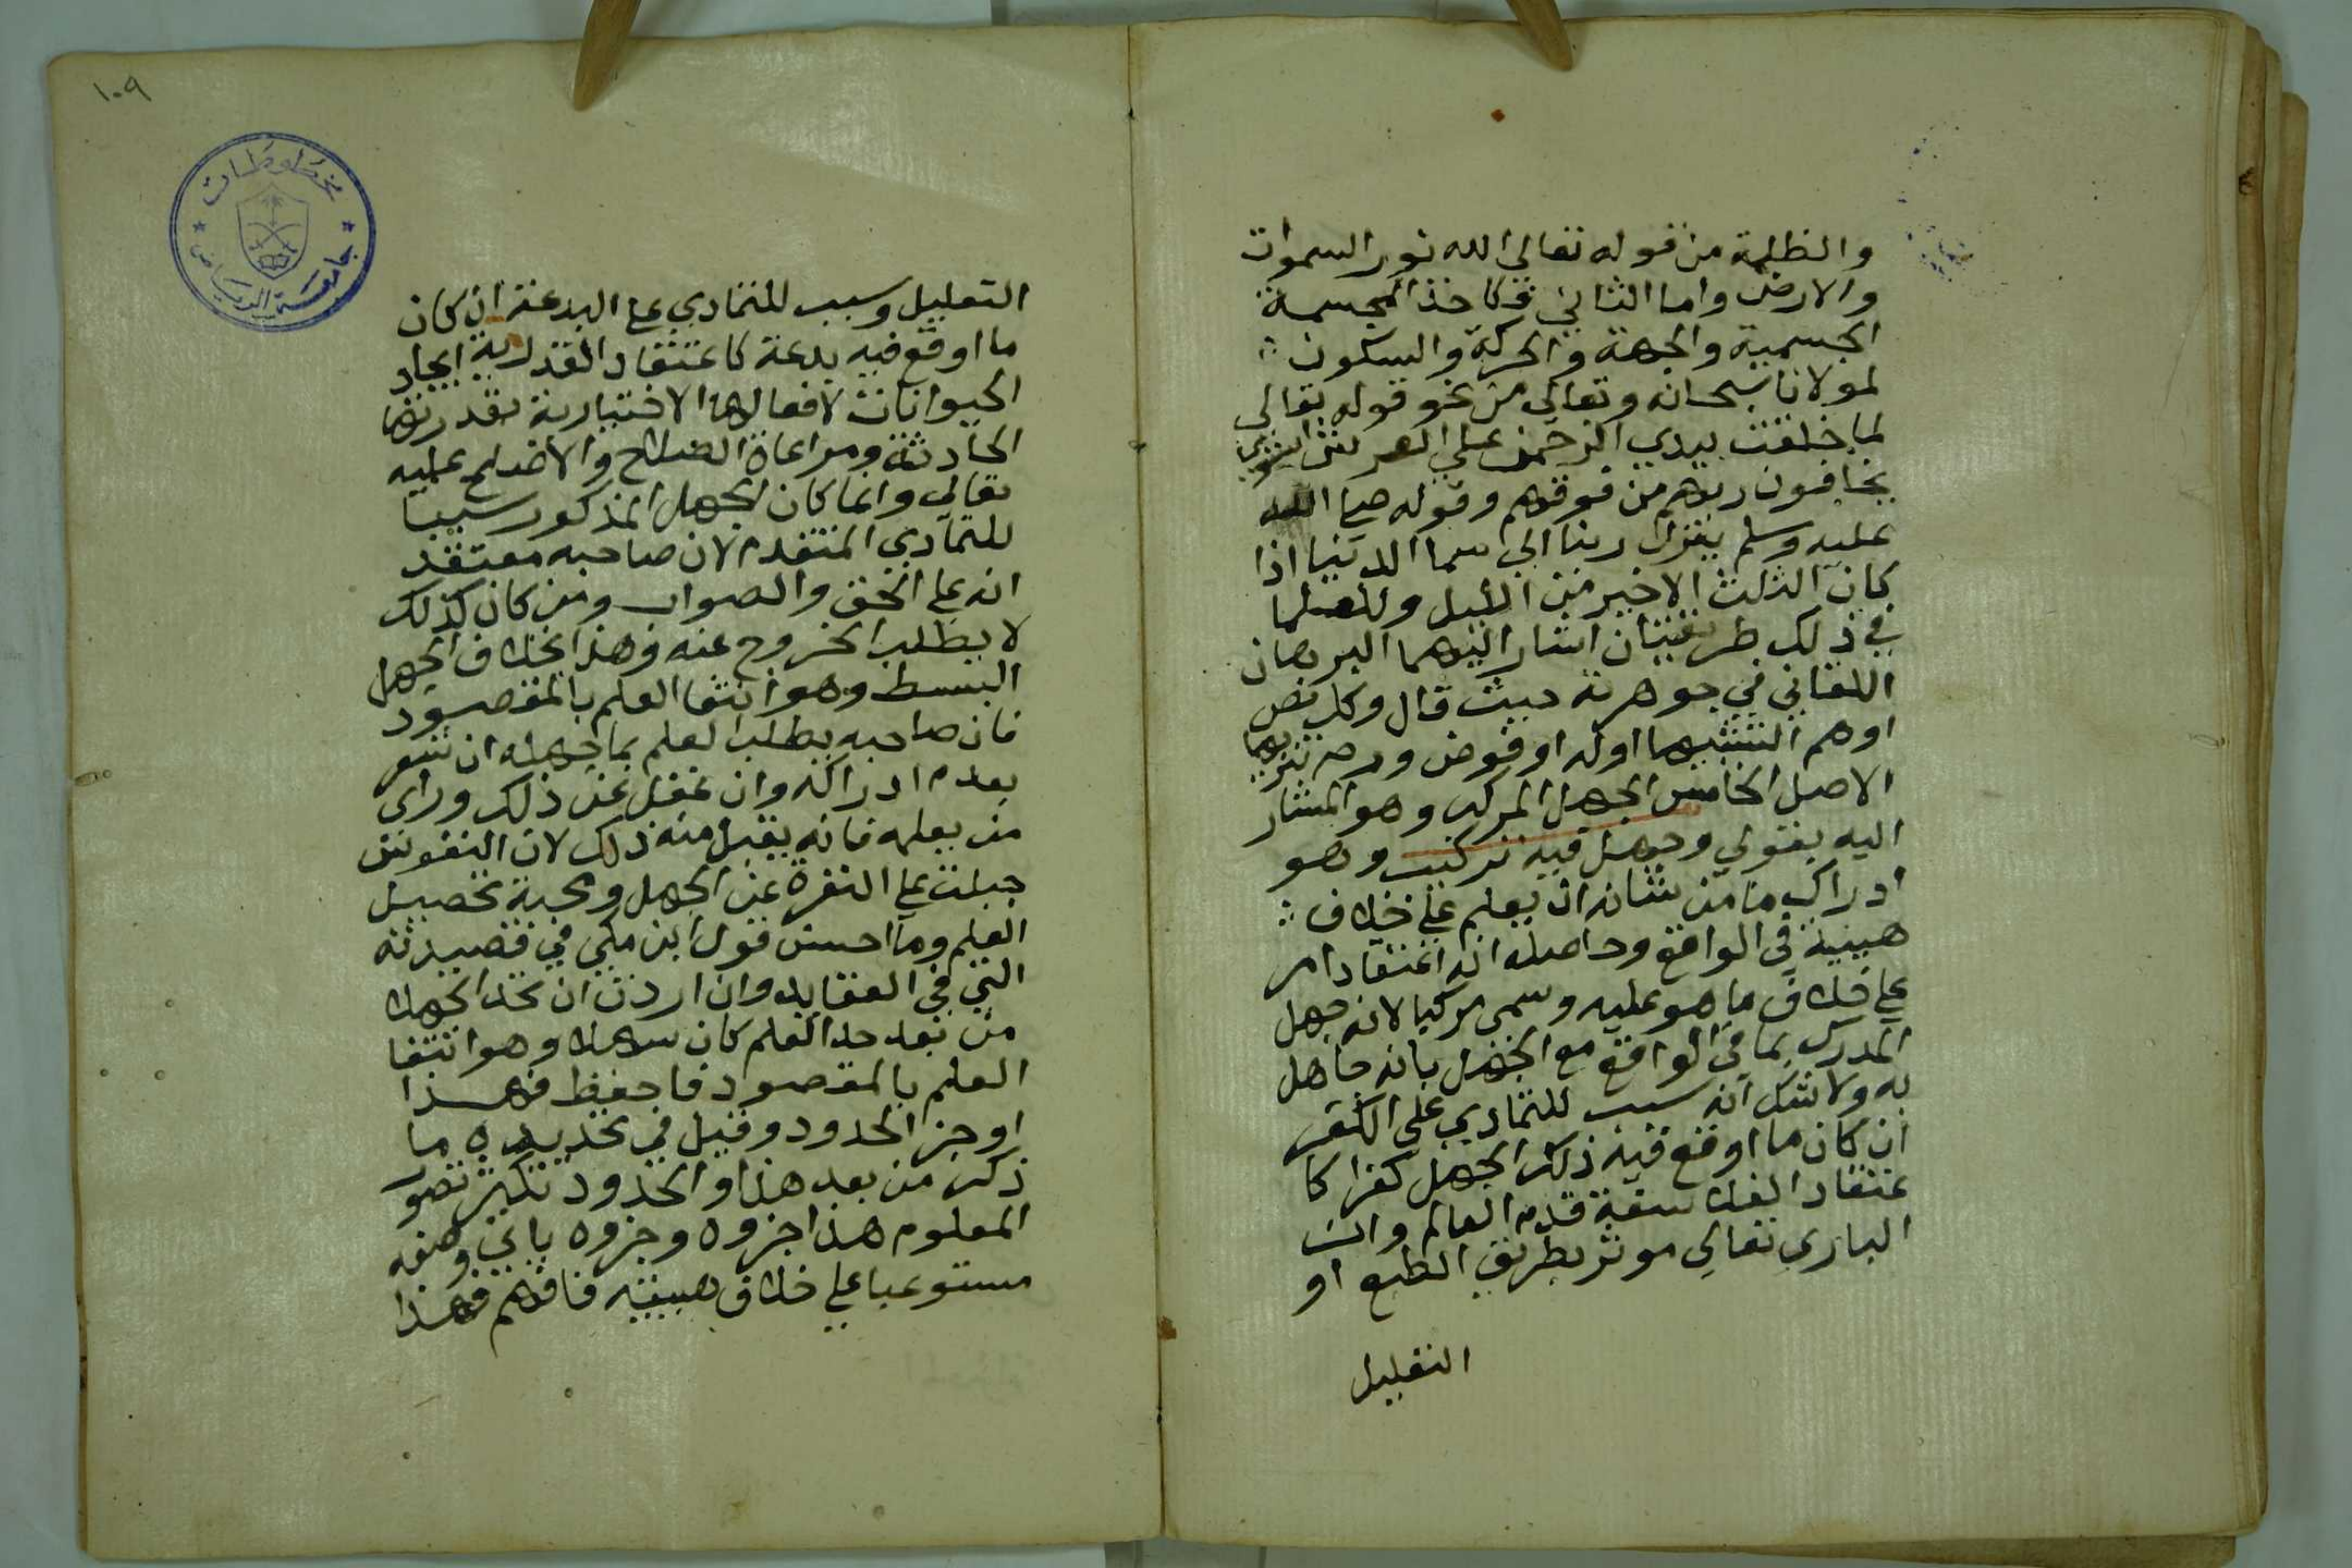 والظلمة من قوله تعالى الله نور السموات
والارض واما الثاني فكاخذ المجسمة
الجسمية والجهة والحركة والسكون
لمولانا سبحانه وتعالى من نحو قوله تعالى
لما خلقت بيدي الرحمن علي العرش استوي
يخافون ربهم من فوقهم وقوله صلى الله
عليه وسلم ينزل ربنا الي سما الدنيا اذا
كان الثلث الاخير من الليل وللعلما
في ذلك طريقتان اشار اليهما البرهان
اللقاني في جوهرته حيث قال وكل نص
اوهم التشبيها اوله او فوض ورم تنزيها
الاصل الخامس الجهل المركب وهو المشار
اليه بقولي وجهل فيه تركيب وهو
ادراك ما من شانه ان يعلم علي خلاف
هييته في الواقع وحاصله انه اعتقاد امر
علي خلاف ما هو عليه وسمى مركبا لانه جهل
المدرك بما في الواقع مع الجهل بانه جاهل
به ولا شك انه سبب للتمادي علي الكفر
ان كان ما اوقع فيه ذلك الجهل كفرا كا
عتقاد الفلاسفة قدم العالم وان
الباري تعالى موثر بطريق الطبع او
التعليل
١٠٩
مخطوطات
جامعة الرياض
التعليل وسبب للتمادي على البدعة ان كان
ما اوقع فيه بدعة كاعتقاد القدرية ايجاد
الحيوانات لافعالها الاختيارية بقدرتها
الحادثة ومراعاة الصلاح والاصلح عليه
تعالى وانما كان الجهل المذكور سببا
للتمادي المتقدم لان صاحبه معتقد
انه على الحق والصواب ومن كان كذلك
لا يطلب الخروج عنه وهذا بخلاف الجهل
البسيط وهو انتفا العلم بالمقصود
فان صاحبه يطلب العلم بما جهله ان شعر
بعدم ادراكه وان غفل عن ذلك وراى
من يعلمه فانه يقبل منه ذلك لان النفوس
جبلت على النفرة عن الجهل ومحبة تحصيل
العلم وما احسن قول ابن مكي في قصيدته
التي في العقايد وان اردت ان تحد الجهلا
من بعد حد العلم كان سهلا وهو انتفا
العلم بالمقصود فاحفظ فهذا
اوجز الحدود وقيل في تحديده ما
ذكر من بعد هذا والحدود تكثر تصور
المعلوم هذا جزوه وجزوه ياتي وصفه
مستوعبا علي خلاف هييته فافهم فهذا